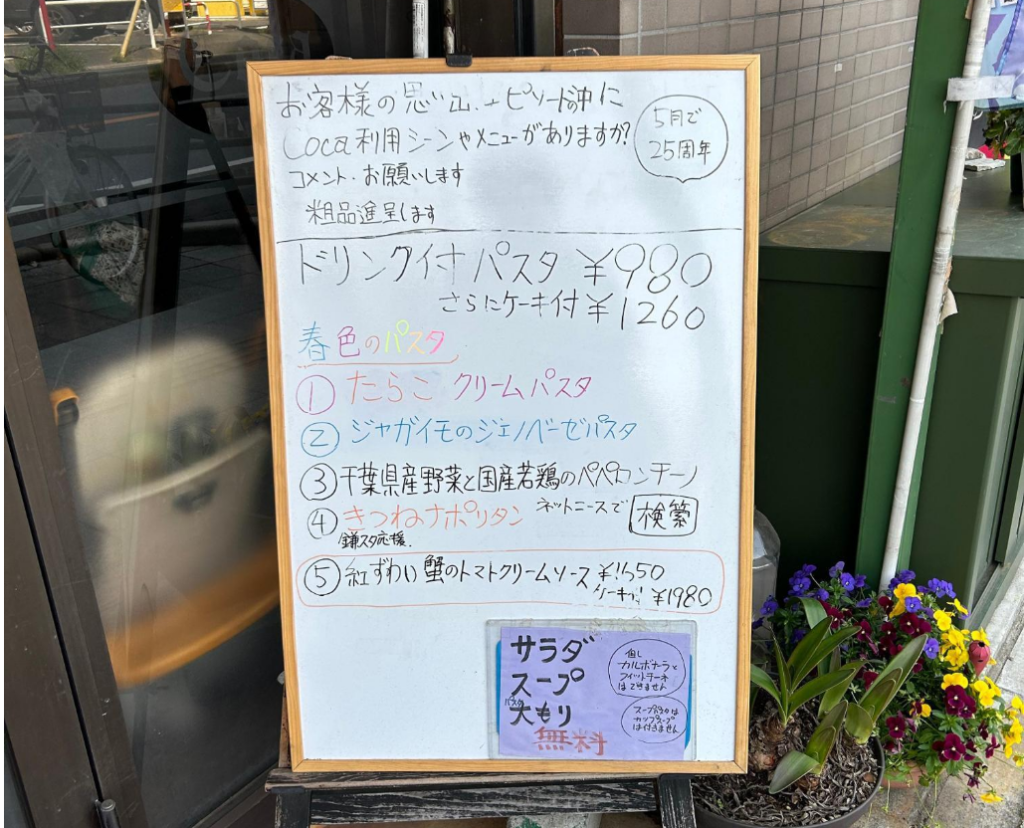 お客様の思い出エピソードの中に
Coca利用シーンやメニューがありますか?
5月で
25周年
コメント・お願いします
粗品進呈します
ドリンク付パスタ ¥980
さらにケーキ付 ¥1260
春色のパスタ
① たらこ クリームパスタ
② ジャガイモのジェノベーゼパスタ
③ 千葉県産野菜と国産若鶏のペペロンチーノ
④ きつねナポリタン ネットニースで 検索
鎌スタ応援.
⑤ 紅ずわい蟹のトマトクリームソース ¥1650
ケーキ付 ¥1980
サラダ
スープ
パスタ大もり
無料
但し
カルボナーラと
フィットチーネ
はできません
カップスープ
は付きません